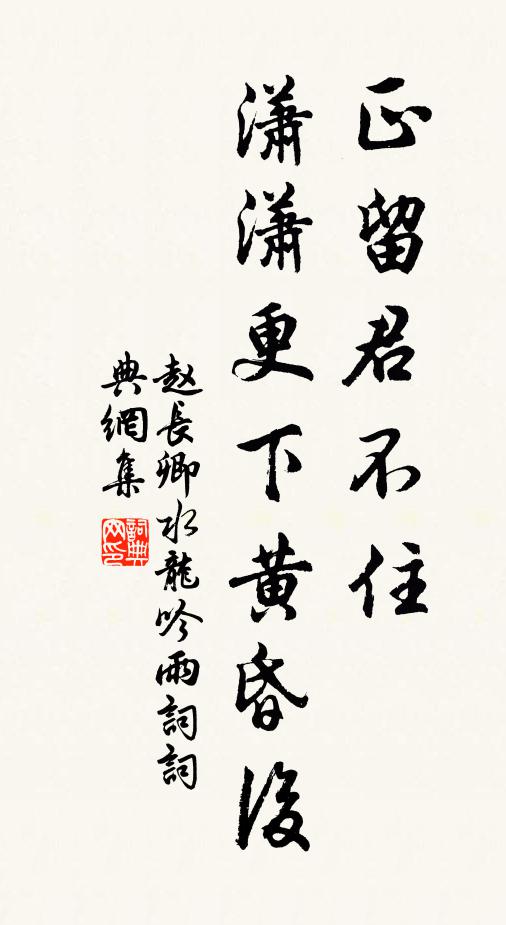 正留君不住
瀟瀟更下黄昏後
赵長卿水龍吟雨詞詞
典網集
詞典网印